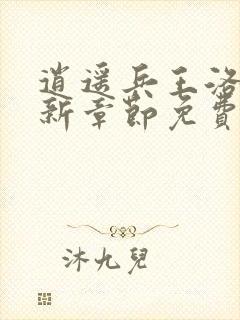 逍遥兵王洛
新章節免費
沐九兒